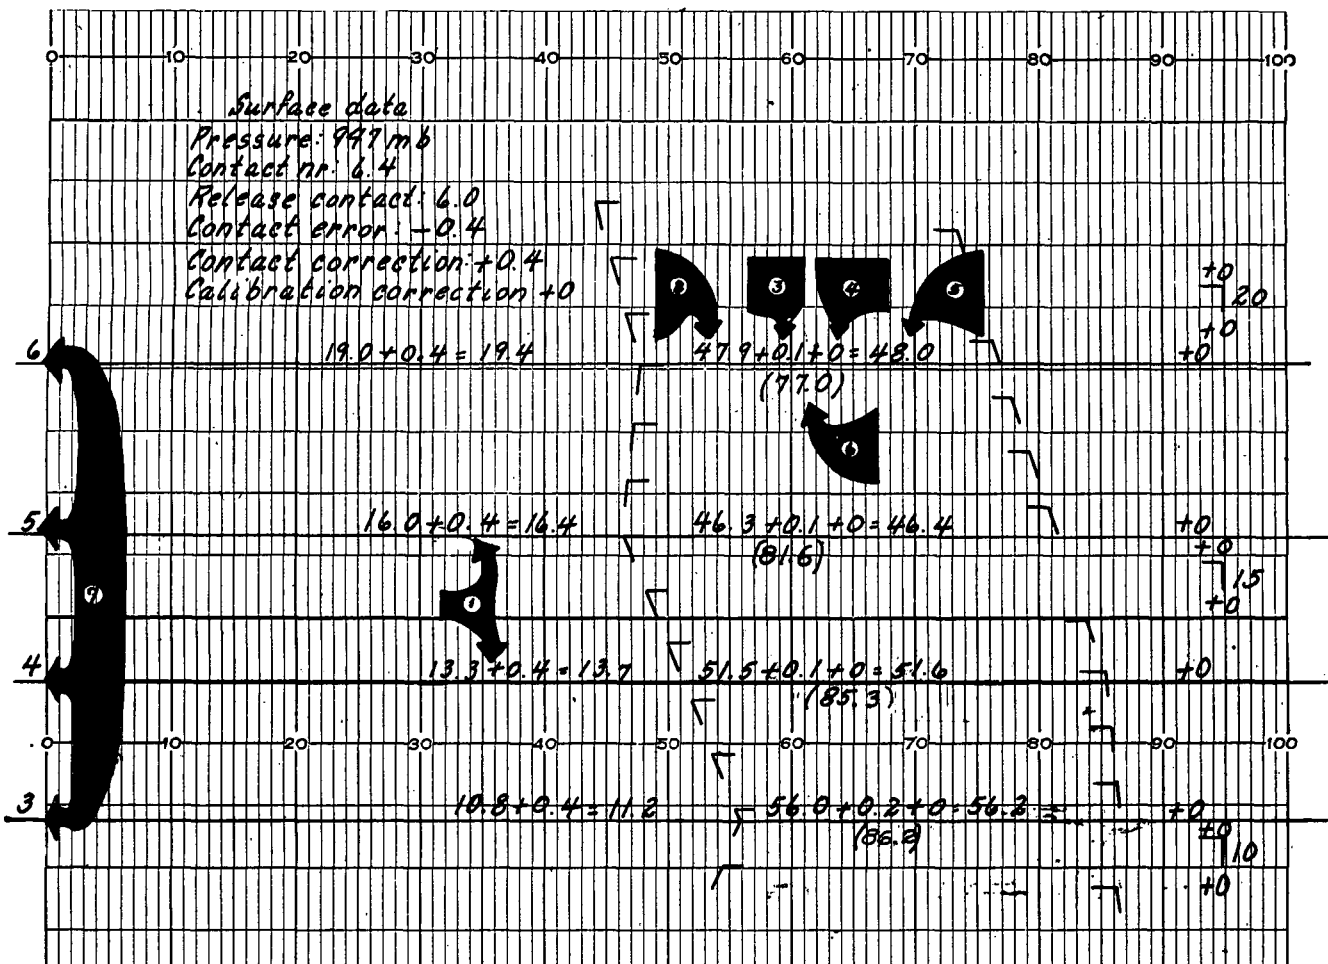 0 10 20 30 40 50 60 70 80 90 100
Surface data
Pressure: 947 mb
Contact nr: 6.4
Release contact: 6.0
Contact error: -0.4
Contact correction: +0.4
Calibration correction +0
+0
20
+0
2 3 4 5
6 19.0 + 0.4 = 19.4 47.9 + 0.1 + 0 = 48.0 +0
(77.0)
6
5 16.0 + 0.4 = 16.4 46.3 + 0.1 + 0 = 46.4 +0
(81.6) +0
15
7 1 +0
4 13.3 + 0.4 = 13.7 51.5 + 0.1 + 0 = 51.6 +0
(85.3)
0 10 20 30 40 50 60 70 80 90 100
3 10.8 + 0.4 = 11.2 56.0 + 0.2 + 0 = 56.2 +0
(86.2) +0
10
+0